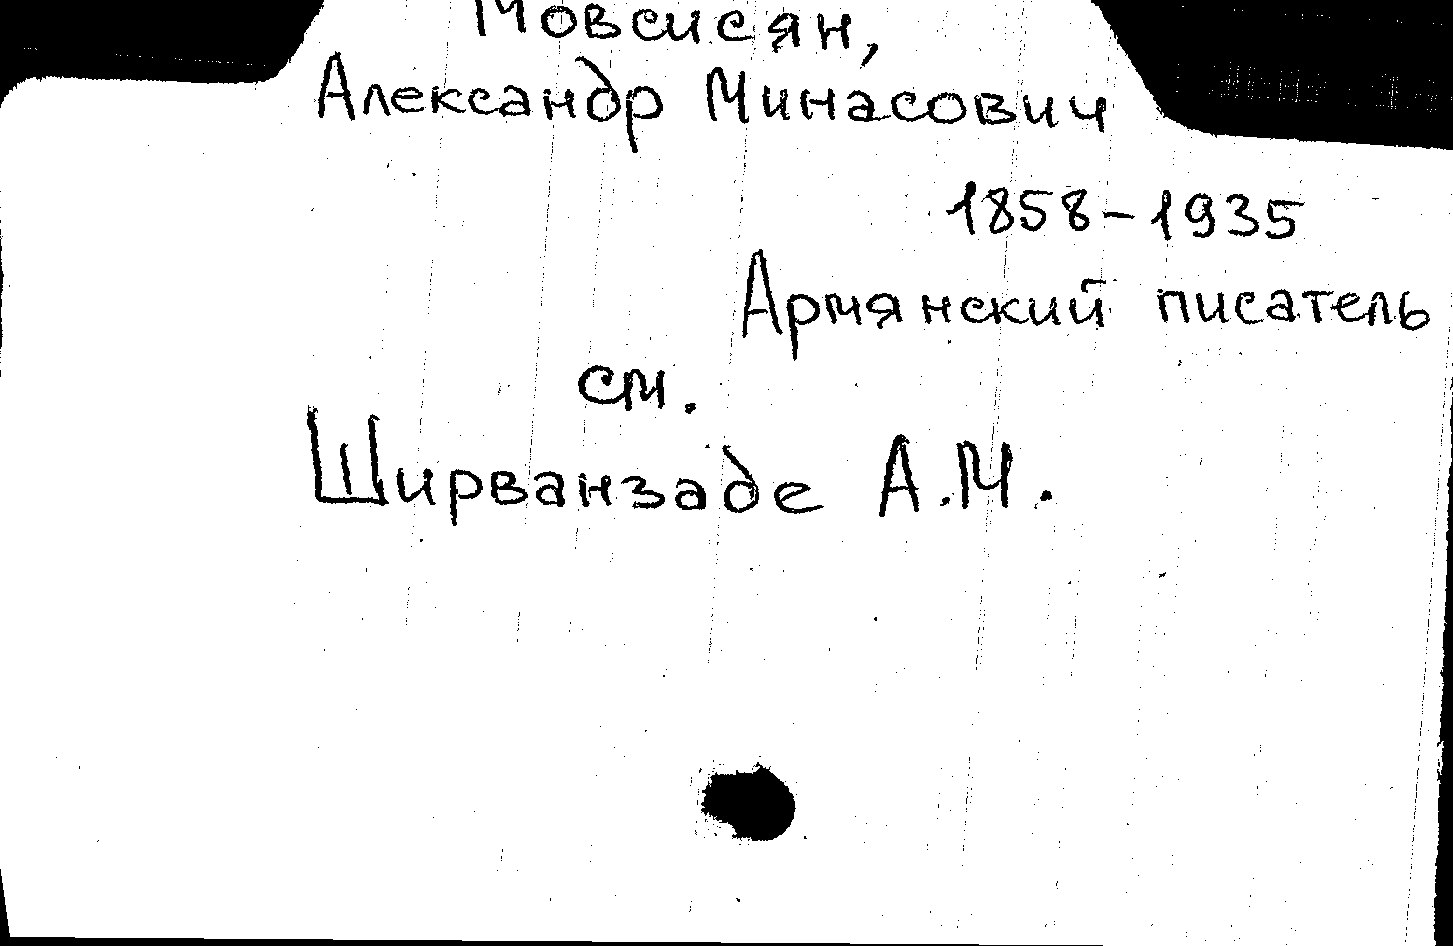 Мовсисян,
Александр Минасович
1858-1935
Армянский писатель
см.
Ширванзаде А.М.